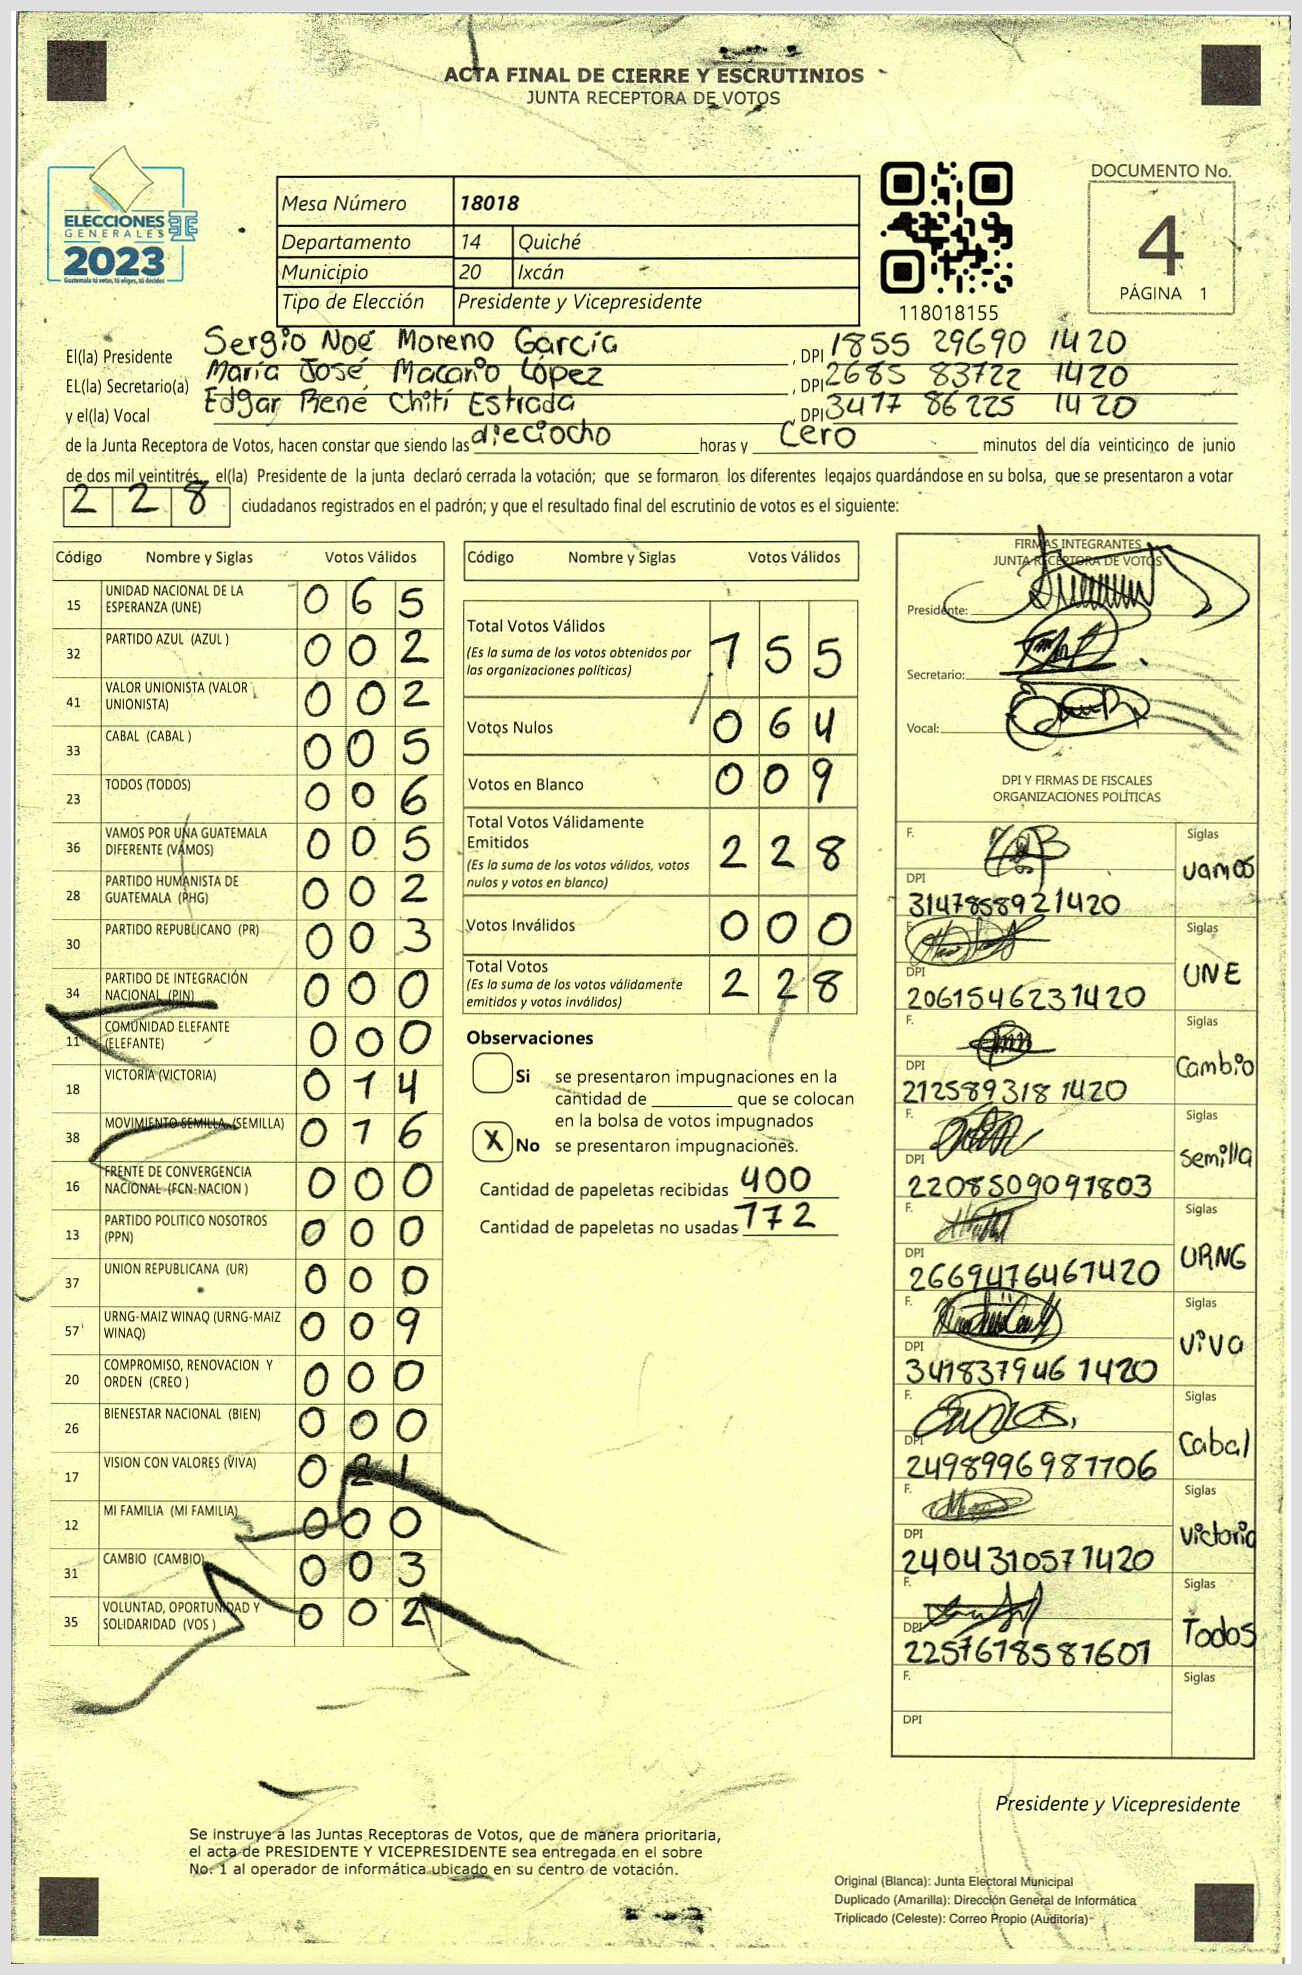 ACTA FINAL DE CIERRE Y ESCRUTINIOS
JUNTA RECEPTORA DE VOTOS
ELECCIONES
GENERALES
2023
Guatemala tú votas, tú eliges, tú decides
Mesa Número 18018
Departamento 14 Quiché
Municipio 20 Ixcán
Tipo de Elección Presidente y Vicepresidente
118018155
DOCUMENTO No.
4
PÁGINA 1
El(la) Presidente Sergio Noé Moreno García, DPI 1855 29690 1420
EL(la) Secretario(a) María José Macario López, DPI 2685 83722 1420
y el(la) Vocal Edgar René Chití Estrada, DPI 3417 86225 1420
de la Junta Receptora de Votos, hacen constar que siendo las dieciocho horas y Cero minutos del día veinticinco de junio
de dos mil veintitrés, el(la) Presidente de la junta declaró cerrada la votación; que se formaron los diferentes legajos guardándose en su bolsa, que se presentaron a votar
228 ciudadanos registrados en el padrón; y que el resultado final del escrutinio de votos es el siguiente:
Código Nombre y Siglas Votos Válidos
15 UNIDAD NACIONAL DE LA ESPERANZA (UNE) 0 6 5
32 PARTIDO AZUL (AZUL ) 0 0 2
41 VALOR UNIONISTA (VALOR UNIONISTA) 0 0 2
33 CABAL (CABAL ) 0 0 5
23 TODOS (TODOS) 0 0 6
36 VAMOS POR UNA GUATEMALA DIFERENTE (VAMOS) 0 0 5
28 PARTIDO HUMANISTA DE GUATEMALA (PHG) 0 0 2
30 PARTIDO REPUBLICANO (PR) 0 0 3
34 PARTIDO DE INTEGRACIÓN NACIONAL (PIN) 0 0 0
11 COMUNIDAD ELEFANTE (ELEFANTE) 0 0 0
18 VICTORIA (VICTORIA) 0 1 4
38 MOVIMIENTO SEMILLA (SEMILLA) 0 1 6
16 FRENTE DE CONVERGENCIA NACIONAL (FCN-NACION ) 0 0 0
13 PARTIDO POLITICO NOSOTROS (PPN) 0 0 0
37 UNION REPUBLICANA (UR) 0 0 0
57 URNG-MAIZ WINAQ (URNG-MAIZ WINAQ) 0 0 9
20 COMPROMISO, RENOVACION Y ORDEN (CREO ) 0 0 0
26 BIENESTAR NACIONAL (BIEN) 0 0 0
17 VISION CON VALORES (VIVA) 0 2 1
12 MI FAMILIA (MI FAMILIA) 0 0 0
31 CAMBIO (CAMBIO) 0 0 3
35 VOLUNTAD, OPORTUNIDAD Y SOLIDARIDAD (VOS ) 0 0 2
Código Nombre y Siglas Votos Válidos
Total Votos Válidos 1 5 5
(Es la suma de los votos obtenidos por
las organizaciones políticas)
Votos Nulos 0 6 4
Votos en Blanco 0 0 9
Total Votos Válidamente
Emitidos 2 2 8
(Es la suma de los votos válidos, votos
nulos y votos en blanco)
Votos Inválidos 0 0 0
Total Votos 2 2 8
(Es la suma de los votos válidamente
emitidos y votos inválidos)
Observaciones
Si se presentaron impugnaciones en la
cantidad de ________ que se colocan
en la bolsa de votos impugnados
X No se presentaron impugnaciones.
Cantidad de papeletas recibidas 400
Cantidad de papeletas no usadas 172
FIRMAS INTEGRANTES
JUNTA RECEPTORA DE VOTOS
Presidente:
Secretario:
Vocal:
DPI Y FIRMAS DE FISCALES
ORGANIZACIONES POLÍTICAS
F. Siglas
DPI vamos
3147858921420
F. Siglas
DPI UNE
2061546231420
F. Siglas
DPI Cambio
2125893181420
F. Siglas
DPI Semilla
2208509091803
F. Siglas
DPI URNG
2669476461420
F. Siglas
DPI viva
3418379461420
F. Siglas
DPI Cabal
2498996981106
F. Siglas
DPI victoria
2404310571420
F. Siglas
DPI Todos
2257618581601
F. Siglas
DPI
Presidente y Vicepresidente
Se instruye a las Juntas Receptoras de Votos, que de manera prioritaria,
el acta de PRESIDENTE Y VICEPRESIDENTE sea entregada en el sobre
No. 1 al operador de informática ubicado en su centro de votación.
Original (Blanca): Junta Electoral Municipal
Duplicado (Amarilla): Dirección General de Informática
Triplicado (Celeste): Correo Propio (Auditoría)